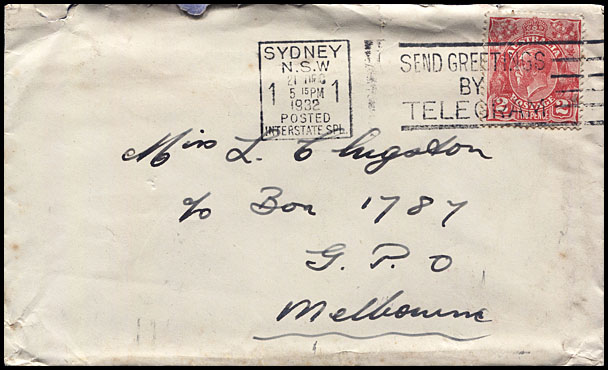 SYDNEY
N.S.W
1 21 DEC 1
5 15 PM
1932
POSTED
INTERSTATE SPL.
SEND GREETINGS
BY
TELEGR
AUSTRALIA
POSTAGE
2 2
TWO PENCE
Miss L. Clugston
c/o Box 1787
G. P. O
Melbourne